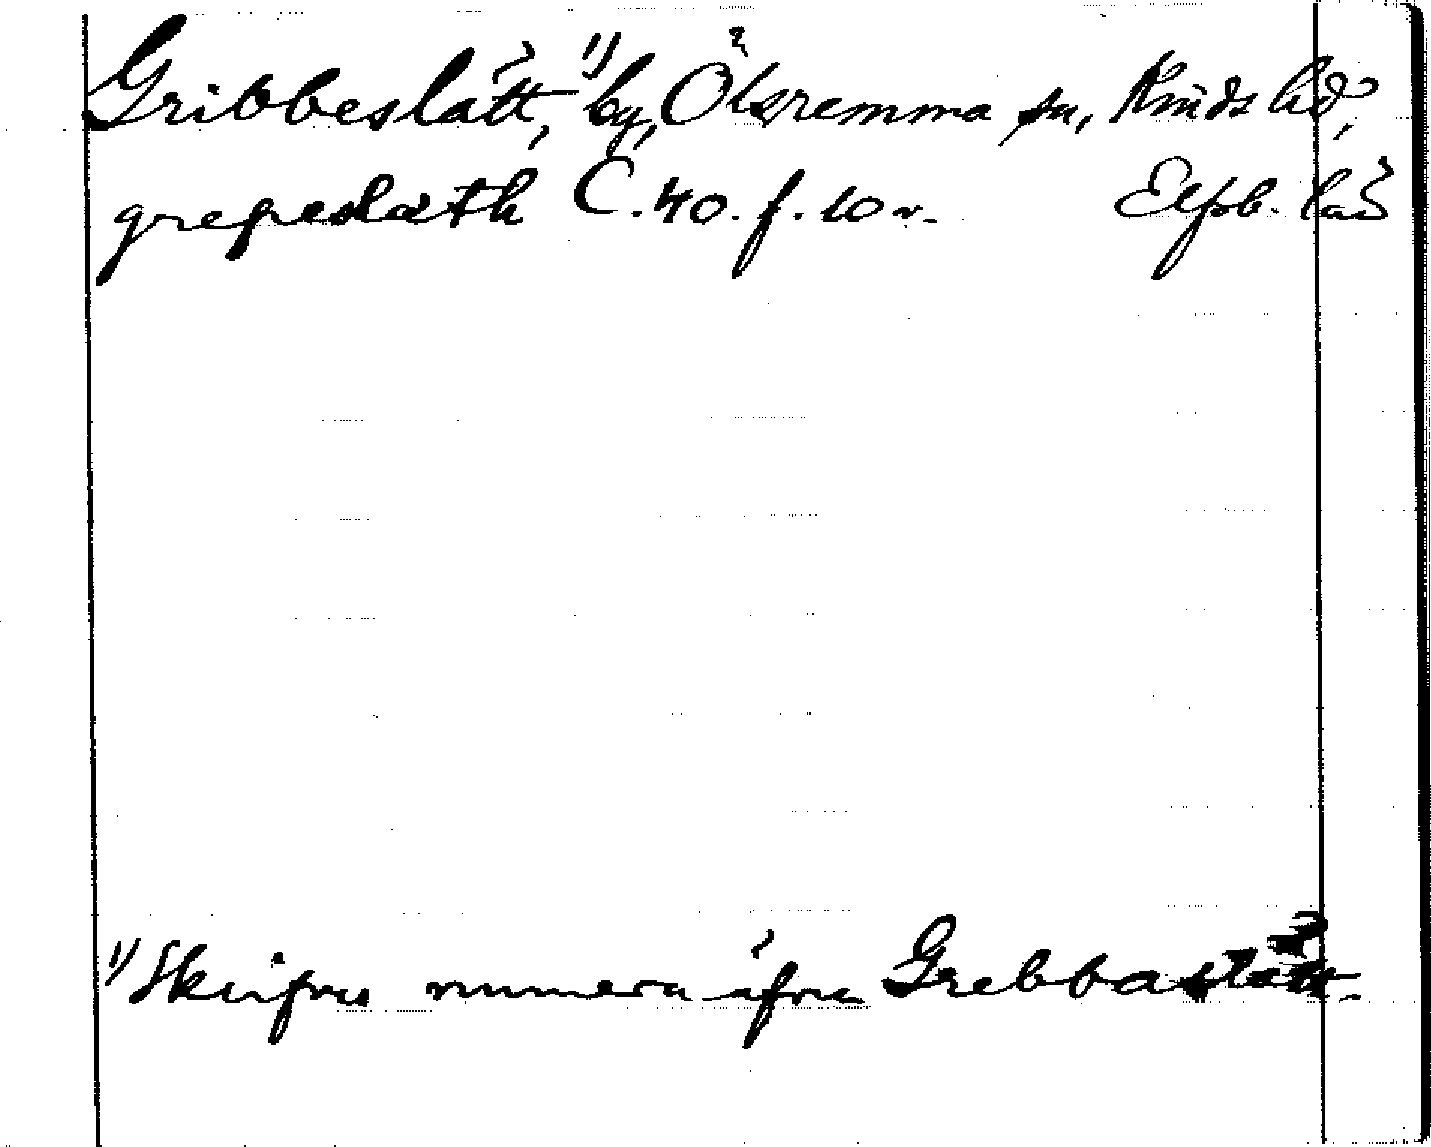 Gribbeslätt,¹⁾ by, Ölsremma sn, Kinds hd,
grepeslæth C. 40. f. 10 v. Elfsb. län
¹⁾ Skrifves numera äfven Grebbaslätt.